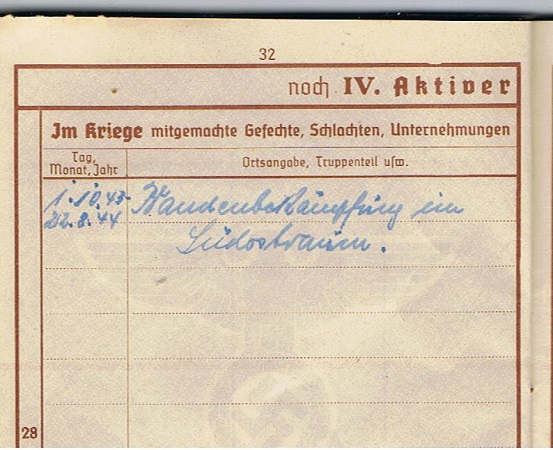 32
noch IV. Aktiver
Im Kriege mitgemachte Gefechte, Schlachten, Unternehmungen
Tag, Monat, Jahr
Ortsangabe, Truppenteil usw.
1.10.43- Bandenbekämpfung im
22.8.44 Südostraum.
28